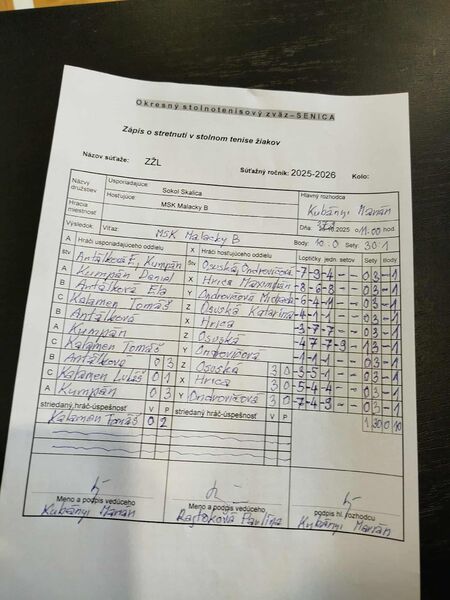 Okresný stolnotenisový zväz – SENICA
Zápis o stretnutí v stolnom tenise žiakov
Názov súťaže: ZŽL Súťažný ročník: 2025-2026 Kolo:
Názvy družstiev Usporiadajúce: Sokol Skalica Hlavný rozhodca
Hosťujúce: MSK Malacky B Kubányi Marián
Hracia miestnosť Dňa: 2025 o 11:00 hod.
Výsledok: Víťaz: MSK Malacky B Body: 10:0 Sety: 30:1
A Hráči usporiadajúceho oddielu X Hráči hosťujúceho oddielu Loptičky jedn. setov Sety Body
Štv Antálková E, Kumpán Štv Osuská Ondrovičová -7 -9 -4 - - 0 3 - 1
A Kumpán Daniel X Hrica Maximilián -8 -6 -8 - - 0 3 - 1
B Antálková Ela Y Ondrovičová Michaela -6 -4 - - 0 3 - 1
C Kalamen Tomáš Z Osuská Katarína -4 -1 -1 - - 0 3 - 1
B Antálková X Hrica -3 -7 -7 - - 0 3 - 1
A Kumpán Z Osuská -4 7 -7 -9 1 3 - 1
C Kalamen Tomáš Y Ondrovičová -1 -1 -1 - - 0 3 - 1
B Antálková 0 3 Z Osuská 3 0 -3 -5 -1 - - 0 3 - 1
C Kalamen Lukáš 0 1 X Hrica 3 0 -5 -4 -4 - - 0 3 - 1
A Kumpán 0 3 Y Ondrovičová 3 0 -7 -4 -9 - - 0 3 - 1
striedaný hráč-úspešnosť V P striedaný hráč-úspešnosť V P 1 30 0 10
Kalamen Tomáš 0 2
Meno a podpis vedúceho Meno a podpis vedúceho podpis hl. rozhodcu
Kubányi Marián Rajtoková Pavlína Kubányi Marián